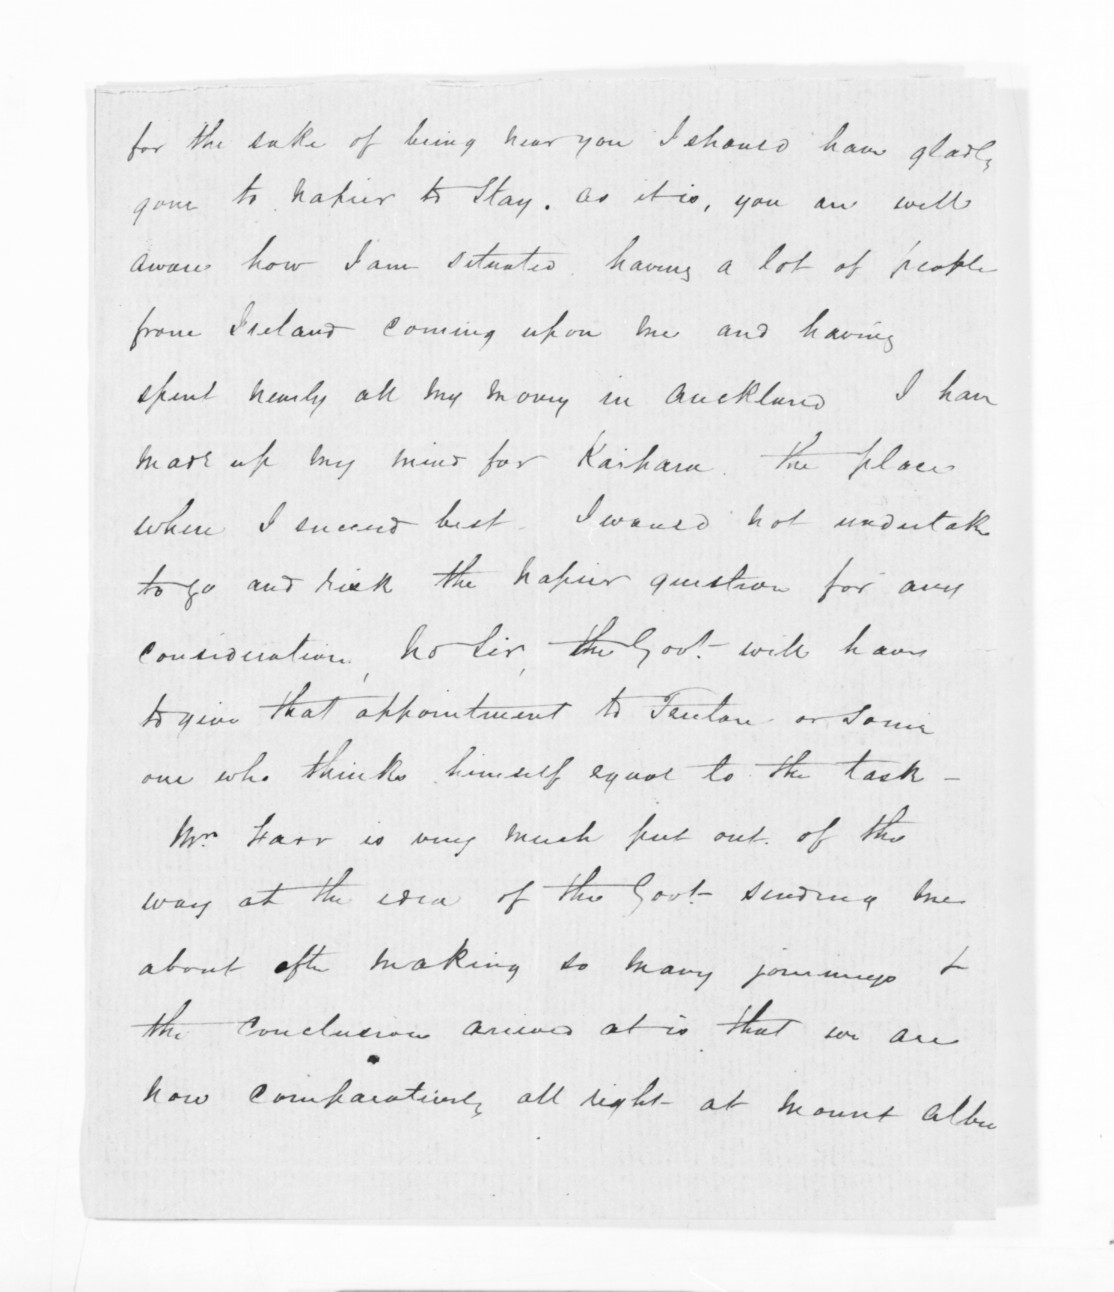 for the sake of being near you I should have gladly
gone to Napier to stay. as it is, you are well
aware how I am situated having a lot of people
from Ireland coming upon me and having
spent nearly all my money in Auckland I have
made up my mind for Kaihara the place
where I succeed best. I would not undertake
to go and risk the Napier question for any
consideration, No Sir, the Govt. will have
to give that appointment to Fenton or some
one who thinks himself equal to the task –
Mrs Farr is very much put out of the
way at the idea of the Govt sending me
about after making so many journeys &
the conclusion arived at is that we are
now comparatively all right at Mount Albu